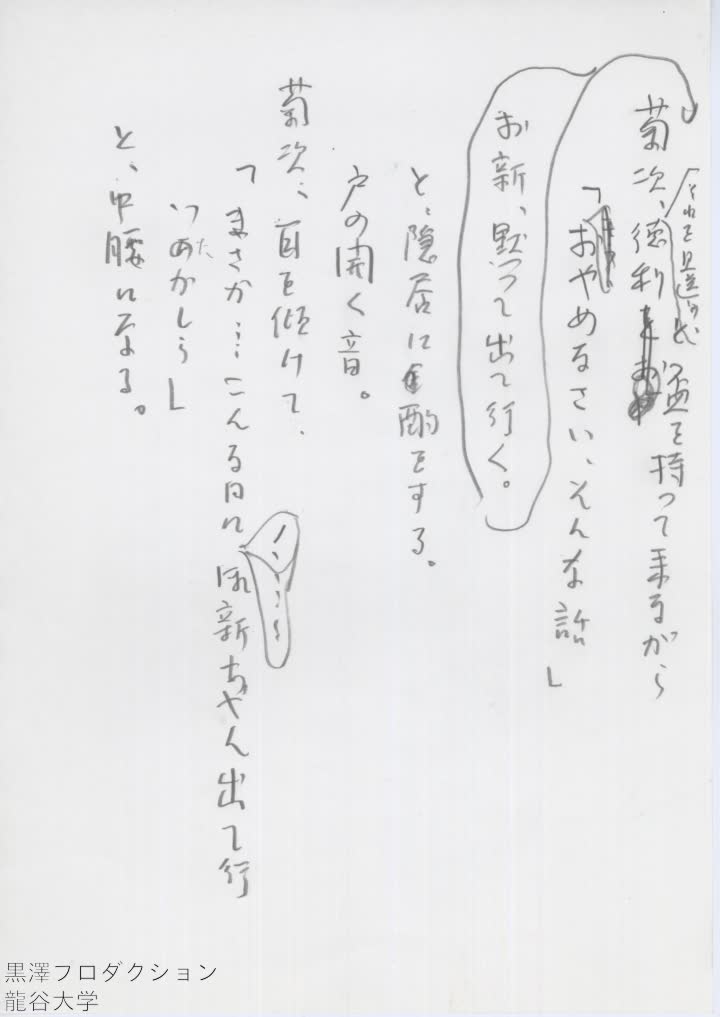 それを見送つて
菊次、徳利と盃を持つて来ながら
「おやめなさい、そんな話」
お新、黙つて出て行く。
と、隠居に酌をする。
戸の開く音。
菊次、耳を傾けて、
「まさか…こんな日にお新ちやん出て行
つたのかしら」
と、中腰になる。
黒澤プロダクション
龍谷大学